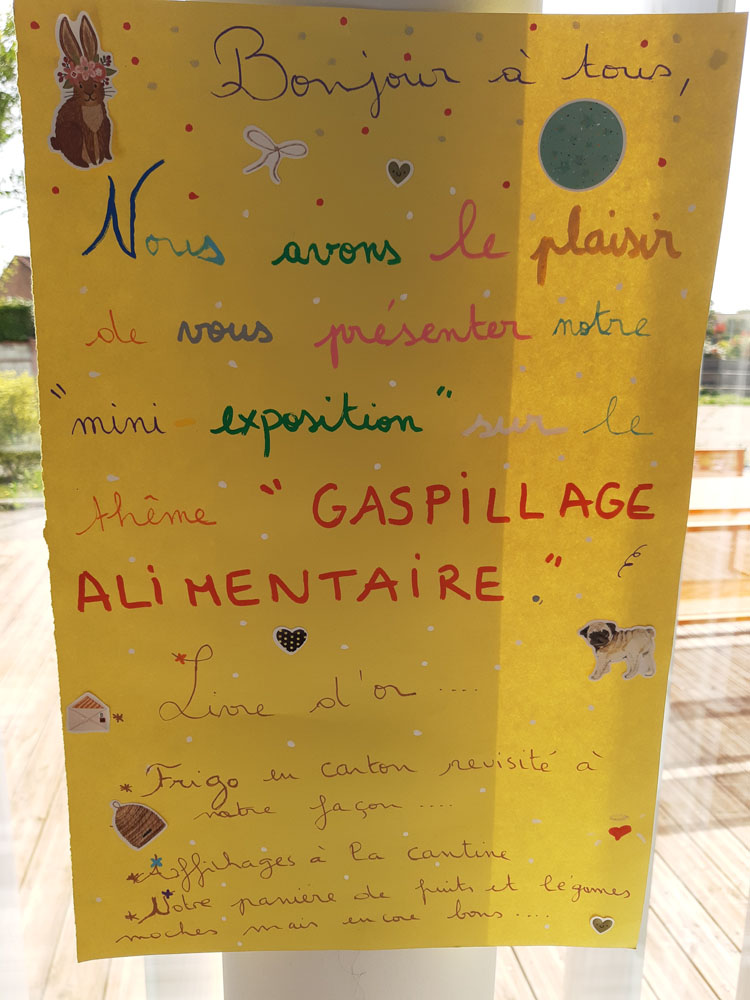 Bonjour à tous,
Nous avons le plaisir
de vous présenter notre
"mini-exposition" sur le
thême "GASPILLAGE
ALiMENTAiRE."
* Livre d'or ....
* Frigo en carton revisité à
notre façon ....
* Affichages à la cantine
* Notre panière de fruits et légumes
moches mais encore bons ....